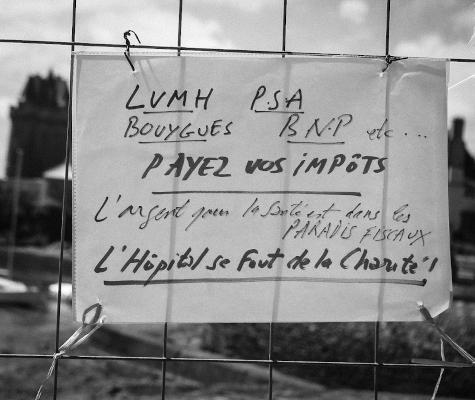 LVMH PSA
BOUYGUES BNP etc...
PAYEZ VOS IMPÔTS
L'argent pour la Santé est dans les
PARADIS FISCAUX
L'Hôpital se Fout de la Charité!